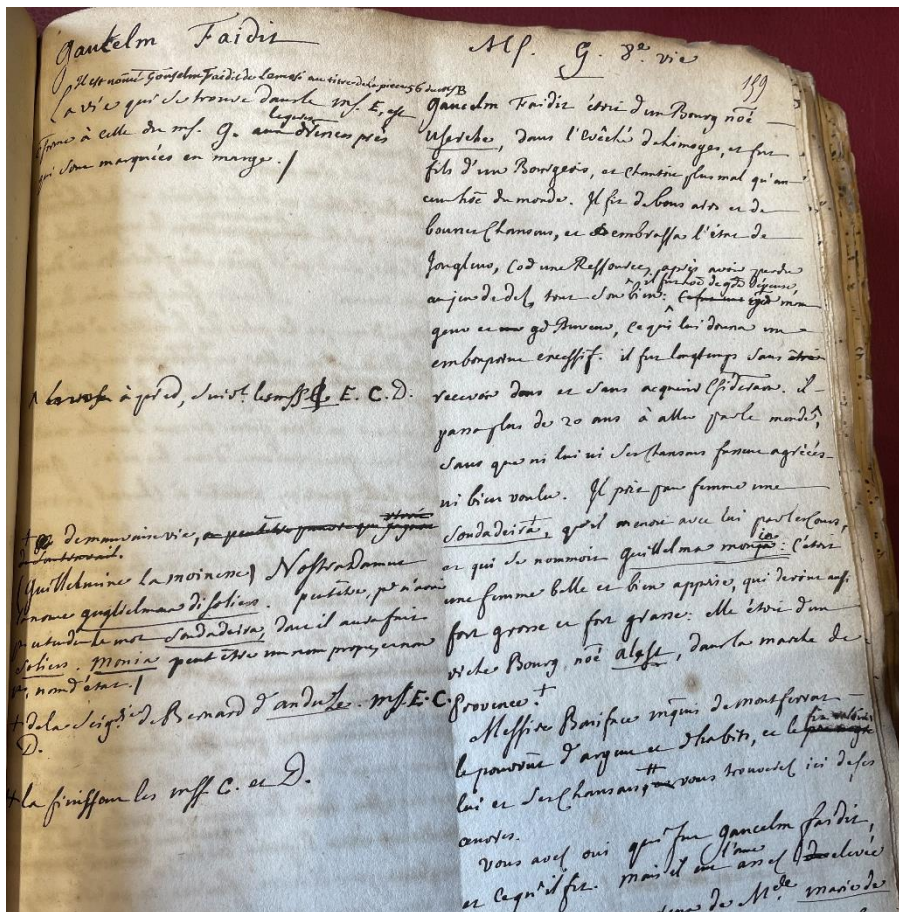 Gaucelm Faidit
Ms. G. 8e. vie
159
Il est nommé Gonselm Faidit de Lemosi au titre de la piece 56 du ms B
La vie qui se trouve dans le ms. E, est
à celle du ms. G. legeres près
qui sont marquées en marge. /
à pied, suivt. les mss E. C. D.
+ de mauvaise vie,
(Guillelmine la moinesse) Nostradamus
nomme guglielmona di soliers. peutêtre, pr n'avoir
entendu le mot soudadeira, dont il aura fait
soliers. monia peut être un nom propre, et non
nom d'état. /
+ de la Seigrie de Bernard d'anduze. ms. E. C.
D.
+ la finissent les mss. C. et D.
Gaucelm Faidit étoit d'un Bourg nõé
Userche, dans l'Evêché de Limoges, et fut
fils d'un Bourgeois, et chantoit plus mal qu'au
cun hõe du monde. Il fit de bons airs et de
bonnes Chansons, et embrassa l'état de
Jongleur, cõe une Ressource, après avoir perdu
au jeu de dés, tout son bien. il fut hõe de gde Dépense,
gd Buveur, ce qui lui donna un
embonpoint excessif. il fut longtemps sans
recevoir dons et sans acquerir Csideraon. il
passa plus de 20 ans à aller par le monde,
sans que ni lui ni ses Chansons fussent agréées
ni bien voulu. Il prit par femme une
Soudadeira+, qu'il menoit avec lui par les Cours,
et qui se nommoit Guillelma monja: C'étoit
une femme belle et bien apprise, qui devint aussi
fort grosse et fort grasse. Elle étoit d'un
riche Bourg, nõé alest, dans la marche de
Provence. +
Messire Boniface mquis de montferrat
le pourvut d'argent et d'habits, et le
lui et ses Chansons vous trouverez ici de ses
œuvres.
Vous avez oui qui fut gaucelm faidit,
et ce qu'il fit. mais il eut l'ame assez elevée
de Mde marie de